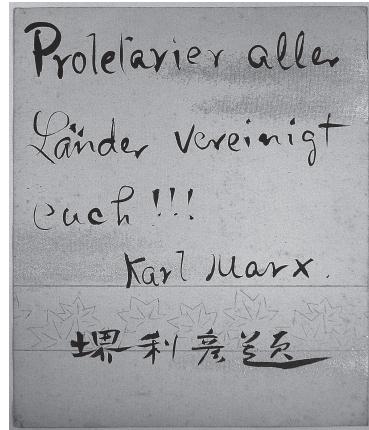 Proletarier aller
Länder vereinigt
euch!!!
Karl Marx.
堺利彦題